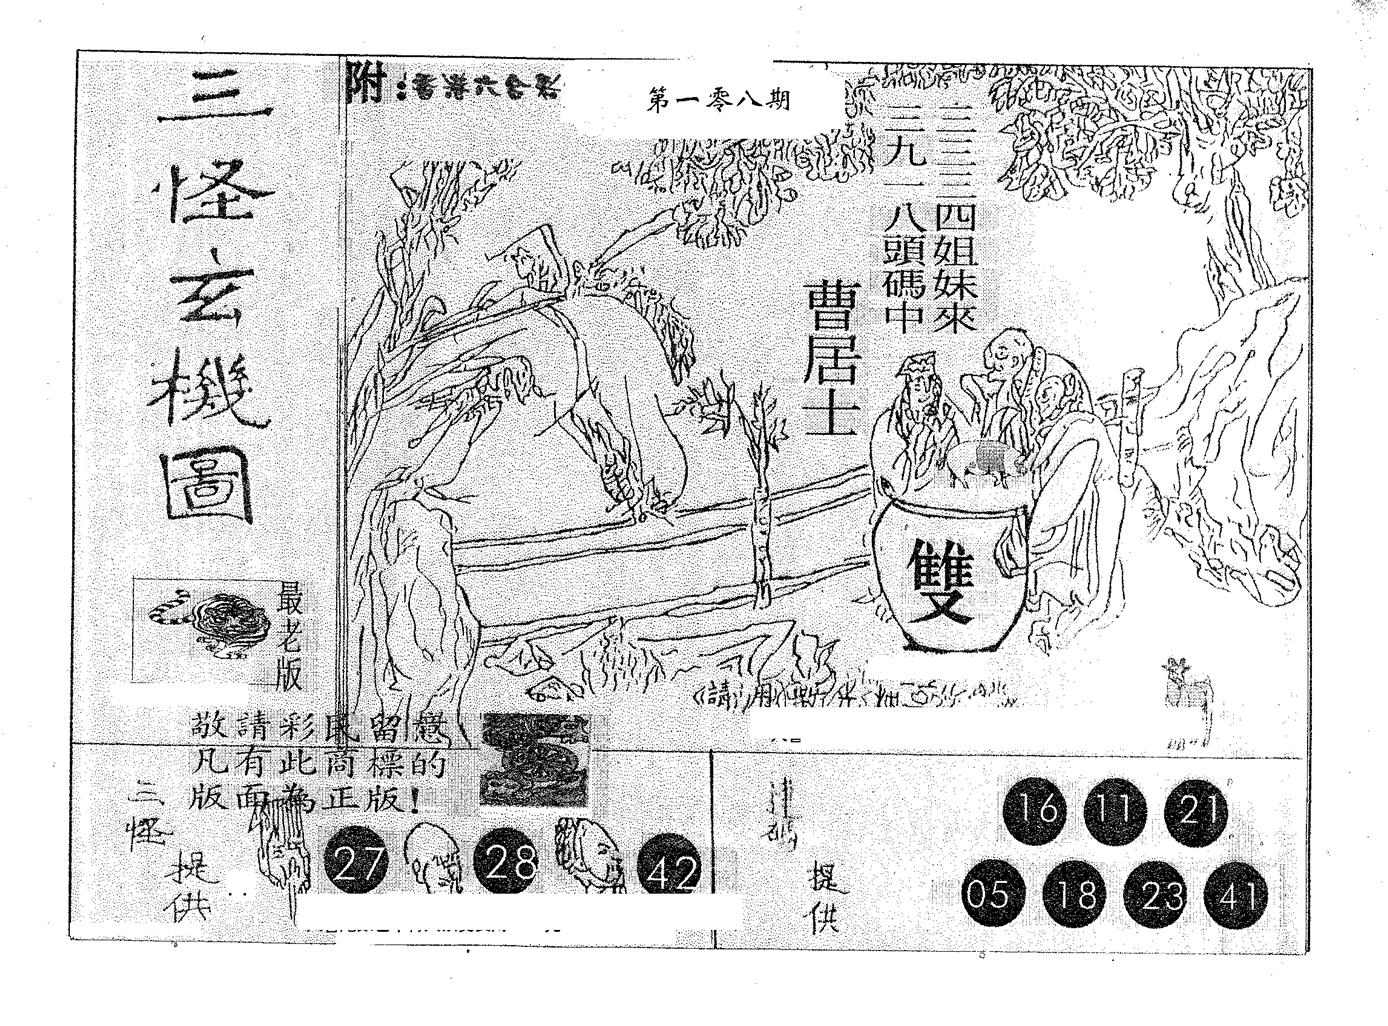 三怪玄機圖
附:香港六合彩
第一零八期
二三三四姐妹來
三九一八頭碼中
曹居士
雙
最老版
敬請彩民留意
凡有此商標的
版面為正版!
三怪
提供
27
28
42
提供
16 11 21
05 18 23 41